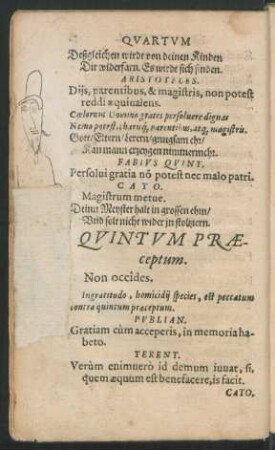 QVARTVM
Deßgleichen wirdt von deinen Kinden
Dir widerfarn. Es wirdt sich finden.
ARISTOTELES.
Dijs, parentibus, & magistris, non potest
reddi æquiualens.
Cœlorum Domino grates persoluere dignas
Nemo potest, charisq́, parentibus, atq́, magistris.
Gott/Eltern/Lerern/gnugsam ehr/
Kan mann erzeygen nimmermeht.
FABIVS QVINT.
Persolui gratia nõ potest nec malo patri.
CATO.
Magistrum metue.
Deinn Meyster halt in grossen ehrn/
Vnd solt nicht wider jn stoltziern.
QVINTVM PRÆ-
ceptum.
Non occides.
Ingratitudo, homicidij species, est peccatum
contra quintum præceptum.
PVBLIAN.
Gratiam cùm acceperis, in memoria ha-
beto.
TERENT.
Verùm enimuerò id demum iuuat, si,
quem æquum est benefacere, is facit.
CATO.